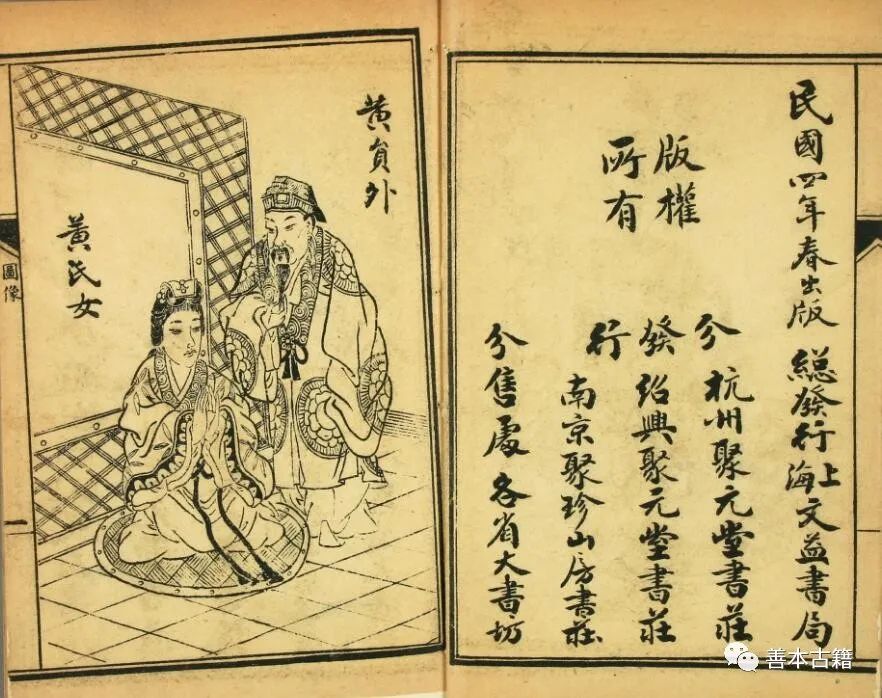 民國四年春出版
總發行上海文益書局
版權
所有
分發行
杭州聚元堂書莊
紹興聚元堂書莊
南京聚珍山房書莊
分售處各省大書坊
黃員外
黃氏女
圖像
一
善本古籍